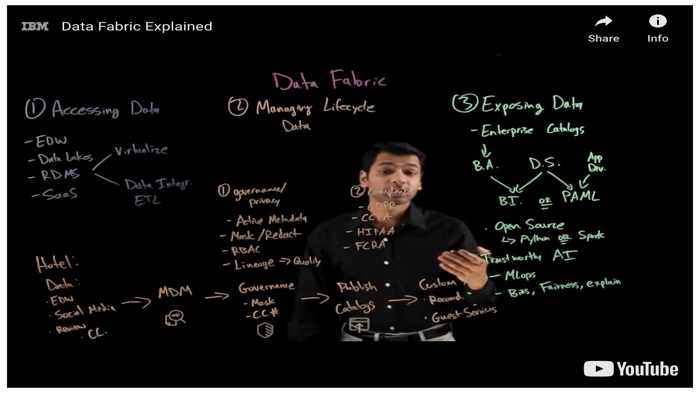 IBM
Data Fabric Explained
Share
Info
Data Fabric
① Accessing Data
- EDW
- Data Lakes
- RDMS
- SaaS
Virtualize
Data Integr.
ETL
② Managing Lifecycle
Data
① governance/
privacy
- Active Metadata
- Mask/Redact
- RBAC
- Lineage → Quality
②
- GDPR
- CCPA
- HIPAA
- FCRA
③ Exposing Data
- Enterprise Catalogs
↓
B.A. D.S. App
Dev.
BI. OR PAML
• Open Source
↳ Python OR Spark
Trustworthy AI
- MLops
- Bias, Fairness, explain
Hotel:
Data:
EDW
• Social Media
• Review
• CC.
→ MDM →
Governance
- Mask
- CC#
→ Publish
Catalogs →
Custom
• Record
• Guest Services
YouTube